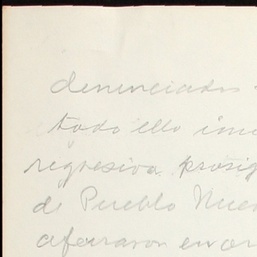 denunciados
todo ello
regresiva. prosig
de Pueblo Nuev
aferraron en or